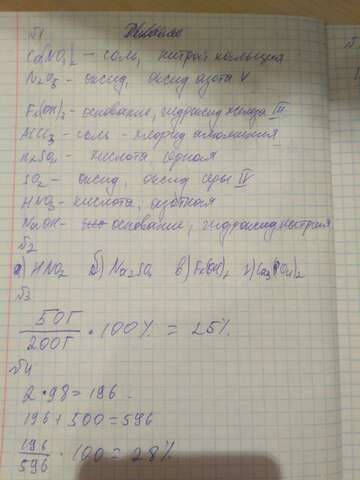 №1
Ca(NO₃)₂ – соль, нитрат кальция
N₂O₅ – оксид, оксид азота V
Fe(OH)₃ – основание, гидроксид железа III
AlCl₃ – соль – хлорид алюминия
H₂SO₄ – кислота, серная
SO₂ – оксид, оксид серы IV
HNO₃ – кислота, азотная
NaOH – основание, гидроксид натрия
№2
а) HNO₂ б) Na₂SO₄ в) Fe(OH)₂ г) Ca₃(PO₄)₂
№3
50г/200г · 100% = 25%.
№4
2 · 98 = 196.
196 + 500 = 596
196/596 · 100 = 28%